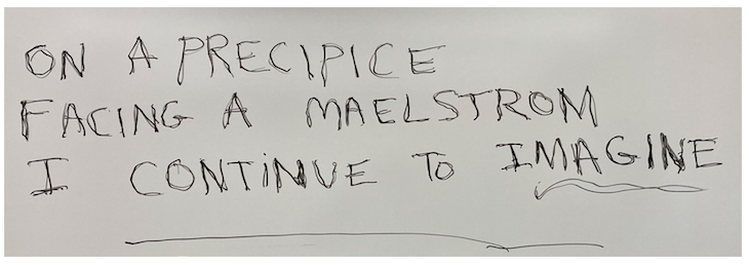 ON A PRECIPICE
FACING A MAELSTROM
I CONTINUE TO IMAGINE